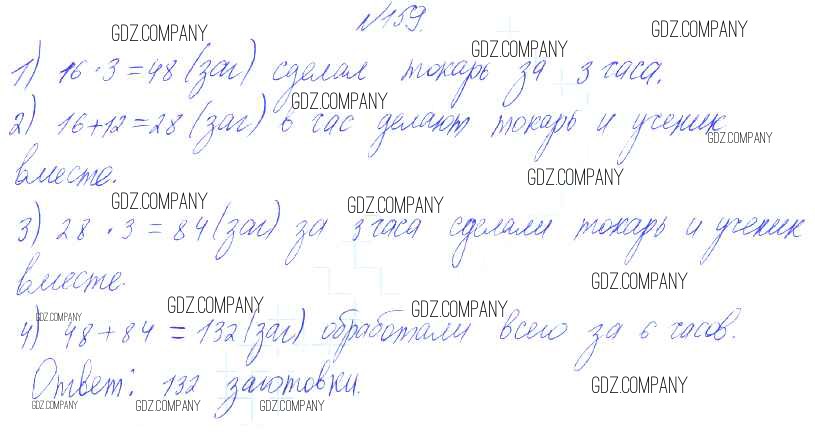 №159.
GDZ.COMPANY GDZ.COMPANY GDZ.COMPANY
1) 16 · 3 = 48 (заг) сделал токарь за 3 часа.
GDZ.COMPANY
2) 16 + 12 = 28 (заг) в час делают токарь и ученик
GDZ.COMPANY
вместе.
GDZ.COMPANY
GDZ.COMPANY GDZ.COMPANY
3) 28 · 3 = 84 (заг) за 3 часа сделали токарь и ученик
вместе.
GDZ.COMPANY
GDZ.COMPANY GDZ.COMPANY GDZ.COMPANY
4) 48 + 84 = 132 (заг) обработали всего за 6 часов.
Ответ: 132 заготовки.
GDZ.COMPANY
GDZ.COMPANY GDZ.COMPANY GDZ.COMPANY